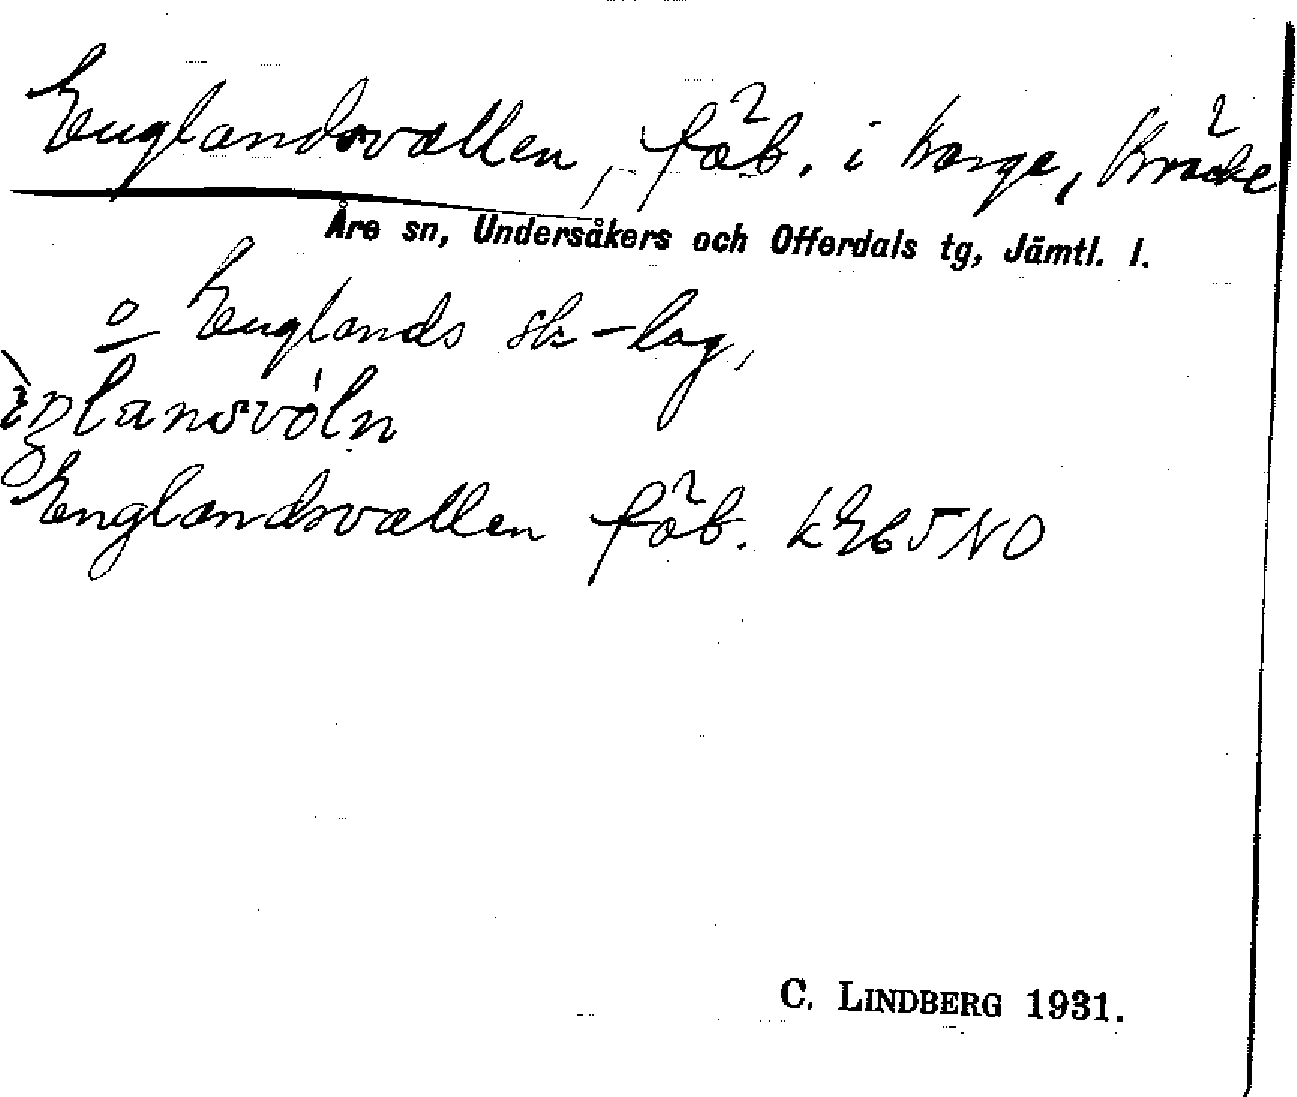 Englandsvallen, fäb. i Norge, Kräcke
Åre sn, Undersåkers och Offerdals tg, Jämtl. l.
o Englands sk-lag,
Englandsvallen fäb. NO
C. LINDBERG 1931.